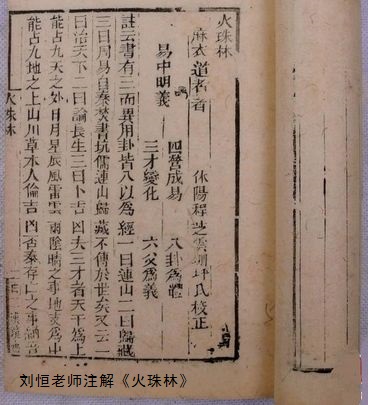 火珠林
麻衣道者著 休陽程芝雲瑚坪氏校正
易中明義
四營成易 八卦爲體
三才變化 六爻爲義
註云書有三而異用卦皆八以爲經一曰連山二曰歸藏
三曰周易自秦焚書坑儒連山歸藏不傳於世矣又云一
曰治天下二曰論長生三曰卜吉凶夫三才者天爲上
能占九天之外日月星辰風雷雲雨陰晴之事地支爲中
能占九地之上山川草木人倫吉凶否泰存亡之事
火珠林
刘恒老师注解《火珠林》